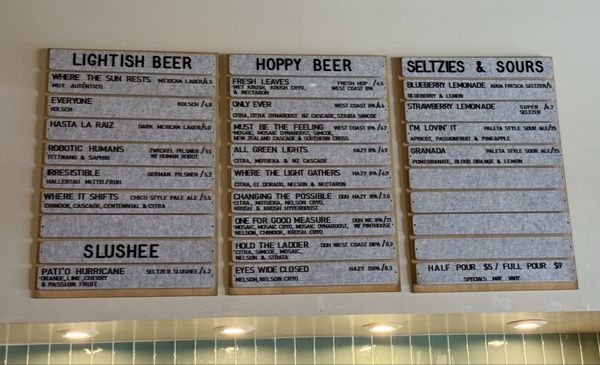 LIGHTISH BEER
WHERE THE SUN RESTS MEXICAN LAGER/4.5
MUY AUTÉNTICO
EVERYONE KOLSCH/4.8
KOLSCH
HASTA LA RAIZ DARK MEXICAN LAGER/5.0
ROBOTIC HUMANS ZWICKEL PILSNER/5.1
TETTNANG & SAPHIR W/HUMAN ROBOT
IRRESISTIBLE GERMAN PILSNER/5.2
HALLERTAU MITTELFRUH
WHERE IT SHIFTS CHICO STYLE PALE ALE/5.5
CHINOOK, CASCADE, CENTENNIAL & CITRA
SLUSHEE
PATI'O HURRICANE SELTZER SLUSHEE/6.2
ORANGE, LIME, CHERRY
& PASSION FRUIT
HOPPY BEER
FRESH LEAVES FRESH HOP /6.5
WET KRUSH, KRUSH CRYO, WEST COAST IPA
& NECTARON
ONLY EVER WEST COAST IPA/6.6
CITRA, CITRA DYNABOOST, NZ CASCADE, STRATA SIMCOE
MUST BE THE FEELING WEST COAST IPA/6.7
MOSAIC, MOSAIC DYNABOOST, SIMCOE,
NEW ZEALAND CASCADE & SOUTHERN CROSS
ALL GREEN LIGHTS HAZY IPA/6.9
CITRA, MOTUEKA & NZ CASCADE
WHERE THE LIGHT GATHERS HAZY IPA/6.9
CITRA, EL DORADO, NELSON & NECTARON
CHANGING THE POSSIBLE DDH HAZY IPA/7.0
CITRA, MOTUEKA, NELSON CRYO,
KRUSH & KRUSH HYPERBOOST
ONE FOR GOOD MEASURE DDH WC IPA/7.1
MOSAIC, MOSAIC CRYO, MOSAIC DYNABOOST, W/ PINTHOUSE
NELSON, CHINOOK, KRUSH CRYO
HOLD THE LADDER DDH WEST COAST DIPA/8.2
CITRA, SIMCOE, MOSAIC,
NELSON & STRATA
EYES WIDE CLOSED HAZY DIPA/8.3
NELSON, NELSON CRYO
SELTZIES & SOURS
BLUEBERRY LEMONADE AGUA FRESCA SELTZER/5
BLUEBERRY & LEMON
STRAWBERRY LEMONADE SUPER /6.7
SELTZER
I'M LOVIN' IT PALETA STYLE SOUR ALE/7.5
APRICOT, PASSIONFRUIT & PINEAPPLE
GRANADA PALETA STYLE SOUR ALE/7.5
POMEGRANATE, BLOOD ORANGE & LEMON
HALF POUR $5 / FULL POUR $9
SPECIALS MAY VARY